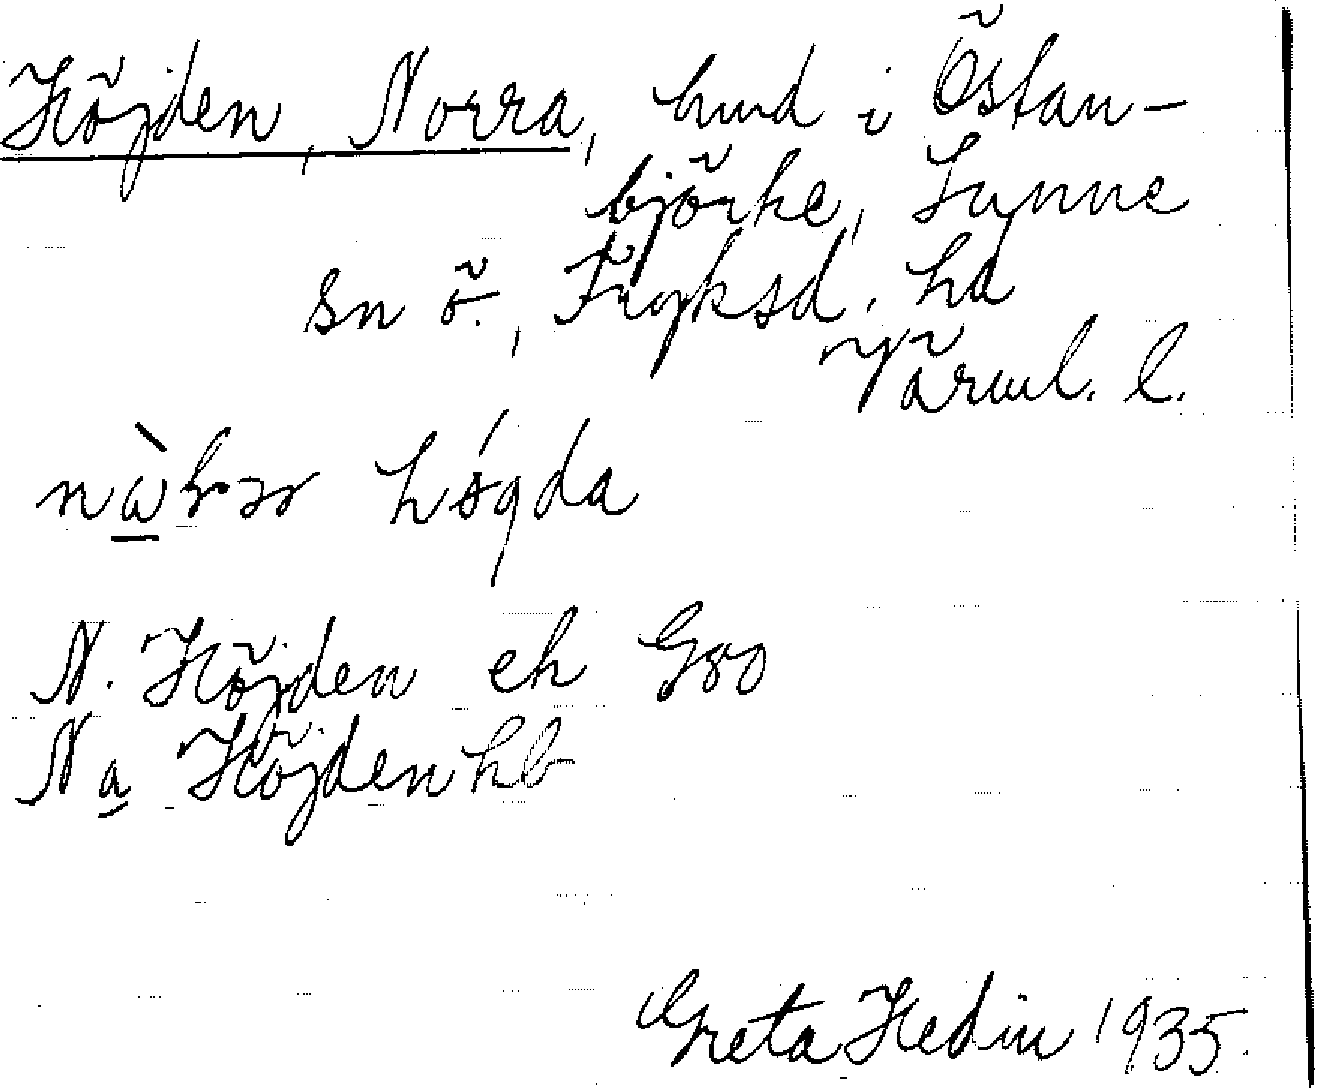 Höjden, Norra, hmd i Östan-
björke, Sunne
sn ö., Fryksd. hd
Värml. l.
höɡda
N. Höjden ek G80
Na Höjden hb
Greta Hedin 1935.